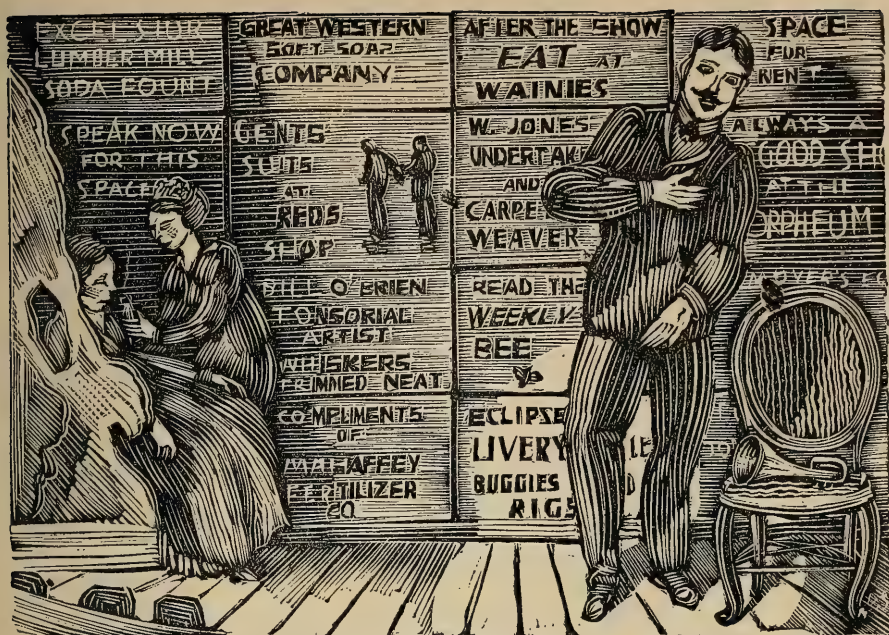 EXCELSIOR
LUMBER MILL
SODA FOUNT
SPEAK NOW
FOR THIS
SPACE
GREAT WESTERN
SOFT SOAP
COMPANY
GENTS'
SUITS
AT
REDS
SHOP
BILL O'BRIEN
TONSORIAL
ARTIST
WHISKERS
TRIMMED NEAT
COMPLIMENTS
OF
MAHAFFEY
FERTILIZER
CO
AFTER THE SHOW
EAT AT
WAINIES
W. JONES
UNDERTAKE
AND
CARPE
WEAVER
READ THE
WEEKLY
BEE
ECLIPSE
LIVERY
BUGGIES
RIGS
SPACE
FOR
RENT
ALWAYS A
GOOD SHO
AT THE
ORPHEUM